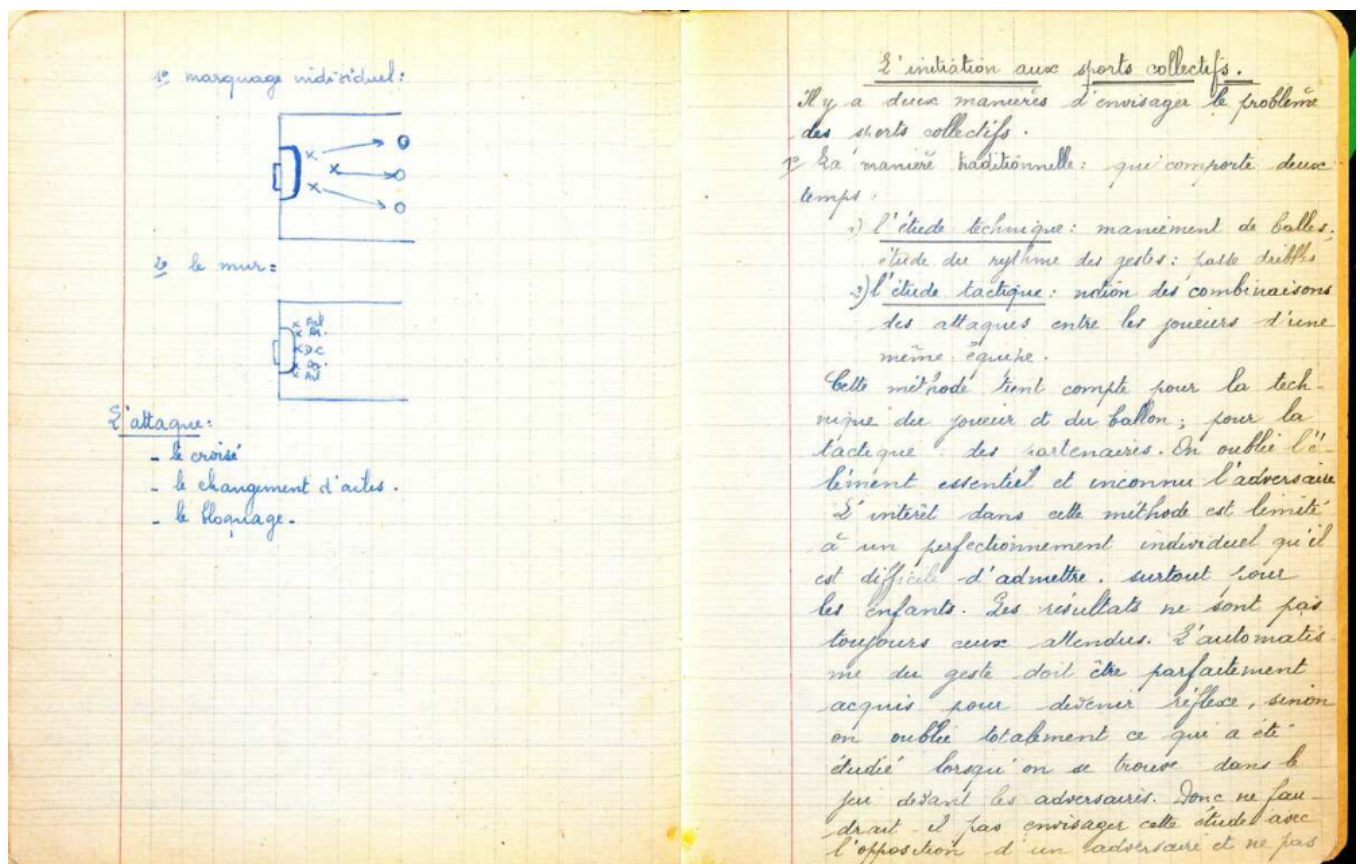 1º marquage individuel:
2º le mur:
x Ail
x Ar.
x D.C
x Ar.
x Ail
L'attaque:
- le croisé
- le changement d'ailes.
- le bloquage.
L'initiation aux sports collectifs.
Il y a deux manières d'envisager le problème
des sports collectifs.
1º La manière traditionnelle: qui comporte deux
temps:
1) l'étude technique: maniement de balles,
étude du rythme des gestes: passe dribbles
2) l'étude tactique: notion des combinaisons
des attaques entre les joueurs d'une
même équipe.
Cette méthode tient compte pour la tech-
nique du joueur et du ballon; pour la
tactique: des partenaires. On oublie l'é-
lément essentiel et inconnu l'adversaire
L'intérêt dans cette méthode est limité
à un perfectionnement individuel qu'il
est difficile d'admettre. surtout pour
les enfants. Les résultats ne sont pas
toujours ceux attendus. L'automatis-
me du geste doit être parfaitement
acquis pour devenir réflexe, sinon
on oublie totalement ce qui a été
étudié lorsqu'on se trouve dans le
jeu devant les adversaires. Donc ne fau-
drait-il pas envisager cette étude avec
l'opposition d'un adversaire et ne pas